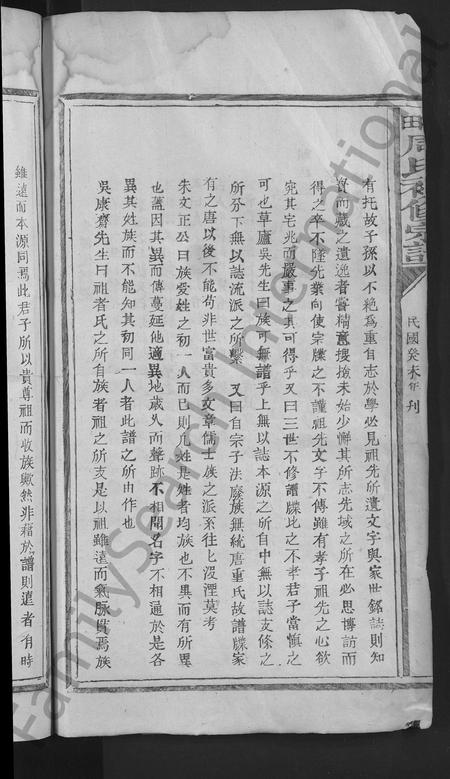 田周氏補修宗譜
民國癸未年刊
有托故子孫以不絕為重自志於學必見祖先所遺文字與家世銘誌則知
寶而藏之遺逸者嘗精意搜撿未始少懈其所志先域之所在必思博訪而
得之卒不墜先業向使宗牒之不謹祖先文字不傳雖有孝子祖先之心欲
究其宅兆而嚴事之其可得乎又曰三世不修譜牒比之不孝君子當慎之
可也草廬吳先生曰族可無譜乎上無以誌本源之所自中無以誌支條之
所分下無以誌流派之所繫 又曰自宗子法廢族無統唐重氏故譜牒家
有之唐以後不能苟非世富貴多文章儒士族之派系往〻沒湮莫考
朱文正公曰族爰姓之初一人而已則凡姓是姓者均族也不異而有所異
也蓋因其異而傳蔓延他適異地歲久而聲跡不相聞名字不相通於是各
異其姓族而不能知其初同一人者此譜之所由作也
吳康齋先生曰祖者氏之所自族者祖之所支是以祖雖遠而氣脉貫焉族
雖遠而本源同焉此君子所以貴尊祖而收族歟然非藉於譜則遠者有時
FamilySearch International